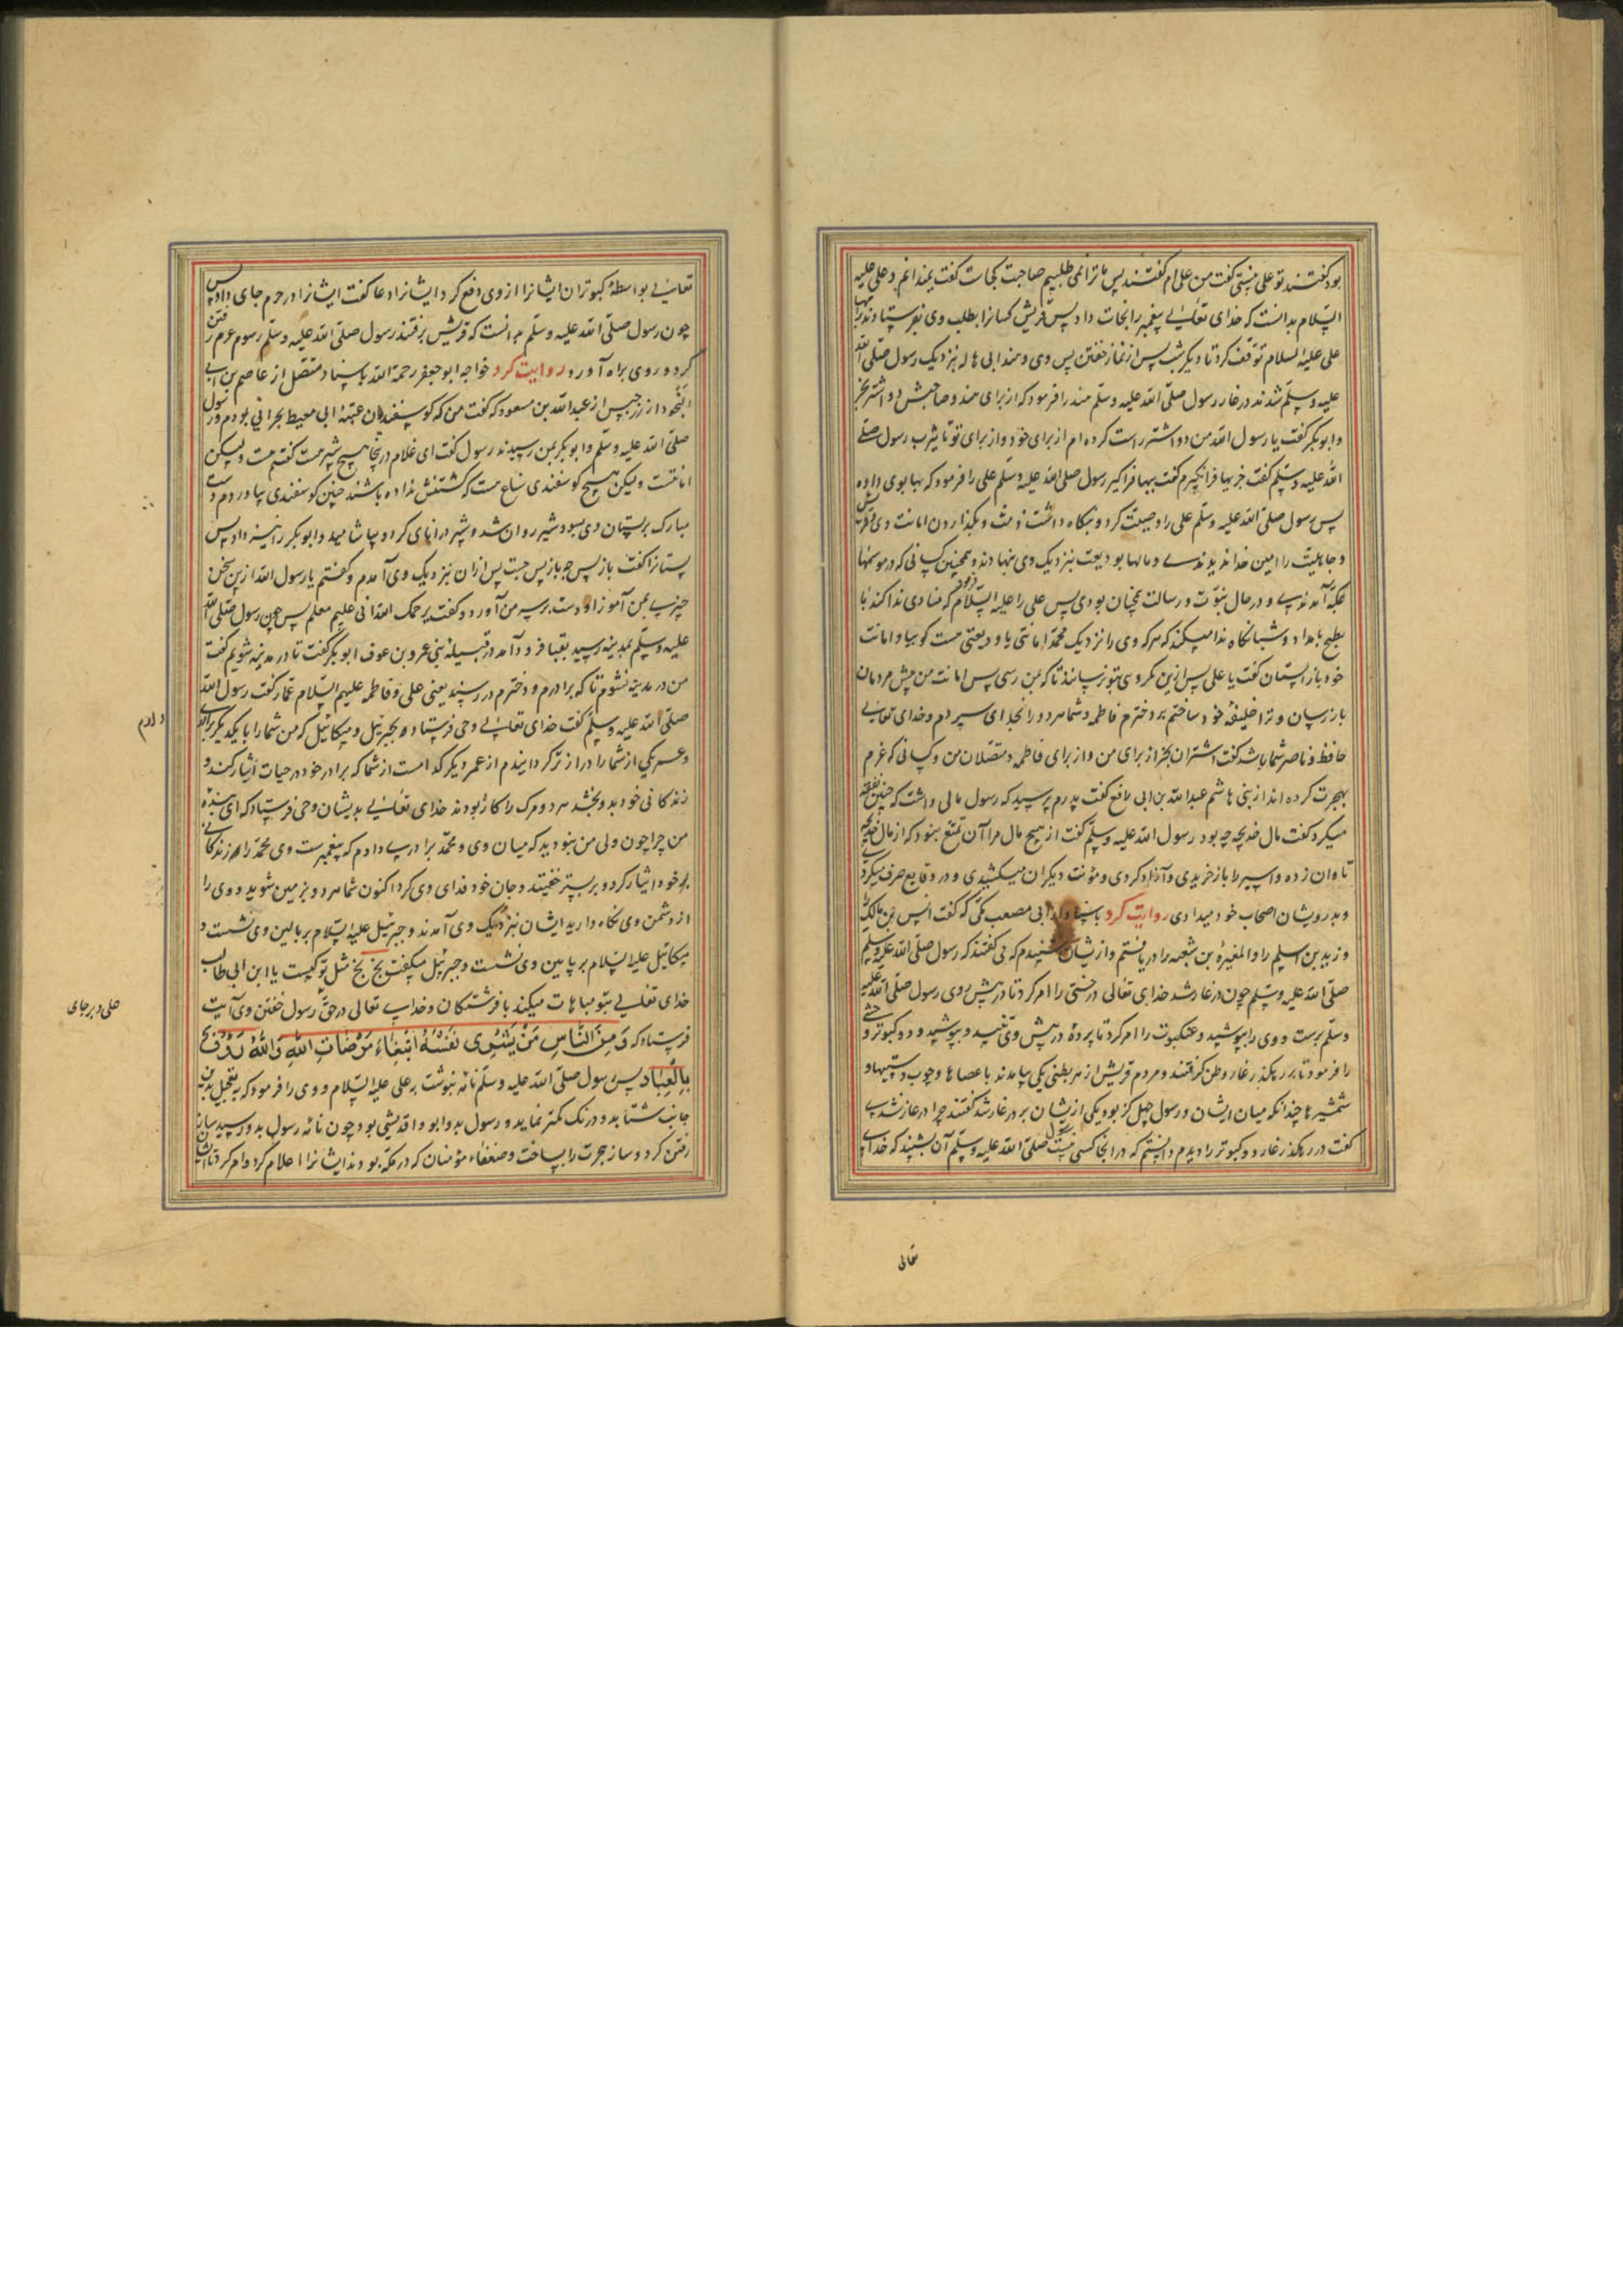 بود گفتند تو علی نیستی گفت من علی ام گفتند پس ما ترا نمی طلبیم صاحبت کجاست گفت نمیدانم و علی علیه
السلام بدانست که خدای تعالی پیغمبر را نجات داد پس قریش کسانرا بطلب وی بفرستادند
علی علیه السلام توقف کرد تا دیگر شب پس از نماز خفتن پس وی و هند ابی هاله نزدیک رسول صلی الله
علیه وسلم شدند در غار رسول صلی الله علیه وسلم هند را فرمود که از برای هند و صاحبش دو اشتر بخر
و ابوبکر گفت یا رسول الله من دو اشتر راست کرده ام از برای خود و از برای تو تا یثرب رسول صلی
الله علیه وسلم گفت جز ببها فرا نگیرم گفت ببها فراگیر رسول صلی الله علیه وسلم علی را فرمود که بها بوی داده
پس رسول صلی الله علیه وسلم علی را وصیت کرد و بنگاه داشت ذمت و بگذاردن امانت وی
و جاهلیت را امین خواندندی و مالها بودیعت بنزدیک وی نهادند و همچنین کسانی که در موسمها
بمکه آمدندی و در حال نبوت و رسالت همچنان بودی پس علی را علیه السلام فرمود که منادی ندا کند با
بطح بامداد و شبانگاه ندا میکند که هر که وی را نزدیک محمد امانتی یا ودیعتی هست گو بیا و امانت
خود بازستان گفت یا علی پس ازین مکروهی بتو نرسانند تا که بمن رسی پس امانت من پیش مردمان
بازرسان و ترا خلیفهٔ خود ساختم بر دخترم فاطمه و شما هر دو را بخدای سپردم و خدای تعالی
حافظ و ناصر شما باشد گفت اشتران بخر از برای من و از برای فاطمه و متصلان من و کسانی که عزم
بهجرت کرده اند از بنی هاشم عبدالله بن ابی رافع گفت پدرم پرسید که رسول مالی داشت که چنین نفقه
میکرد گفت مال خدیجه چه بود رسول الله علیه وسلم گفت از هیچ مال مرا آن تمتع نبود که از مال خدیجه
تاوان زده و اسیر را بازخریدی و آزاد کردی و مؤنت دیگران میکشیدی و در وقایع صرف میکردی
و بدرویشان اصحاب خود میدادی روایت کرد باسناد از ابی مصعب مکی که گفت انس بن مالک
و زید بن اسلیم را و المغیره بن شعبه را دریافتم و ازیشان شنیدم که می گفتند که رسول صلی الله علیه وسلم
صلی الله علیه وسلم چون در غار شد خدای تعالی درختی را امر کرد تا در پیش روی رسول صلی الله علیه
وسلم برست و وی را بپوشید و عنکبوت را امر کرد تا پرده در پیش وی تنید و بپوشید و دو کبوتر وحشی
را فرمود تا بر رهگذر غار وطن گرفتند و مردم قریش از هر بطنی یکی بیامدند با عصاها و چوب دستیها و
شمشیرها چندانکه میان ایشان و رسول چهل گز بود یکی ازیشان بر در غار شد گفتند چرا در غار نشدی
گفت در رهگذر غار دو کبوتر را دیدم دانستم که در انجا کسی نیست رسول صلی الله علیه وسلم آن بشنید که خدای
تعالی
تعالی بواسطهٔ کبوتران ایشانرا از وی دفع کرد ایشانرا دعا گفت ایشانرا در حرم جای داد پس
چون رسول صلی الله علیه وسلم بدانست که قریش برفتند رسول صلی الله علیه وسلم رسوم عزم رفتن
کرد و روی براه آورد روایت کرد خواجه ابوجعفر رحمة الله باسناد متصل از عاصم بن ابی
النجود از زر حبیس از عبدالله بن مسعود که گفت من که گوسفندان عتبه ابی معیط بچرانی بودم و رسول
صلی الله علیه وسلم و ابوبکر بمن رسیدند رسول گفت ای غلام در اینجا هیچ شیر هست گفتم هست ولیکن
امانتست ولیکن هیچ گوسفندی نتاج هست که گشنش نداده باشند چنین گوسفندی بیاوردم دست
مبارک برپستان وی بسود شیر روان شد و شیر در انای کرد و بیاشامید و ابوبکر را نیز داد پس
پستانرا گفت بازپس جه بازپس جست پس ازان نزدیک وی آمدم و گفتم یا رسول الله ازین سخن
چیزی بمن آموز او دست بر سر من آورد و گفت یرحمک الله انی علیم معلم پس چون رسول صلی الله
علیه وسلم بمدینه رسید بقبا فرود آمد در قبیلهٔ بنی عمرو بن عوف ابوبکر گفت تا در مدینه شویم گفت
من در مدینه نشوم تا که برادرم و دخترم در رسند یعنی علی و فاطمه علیهم السلام عمار گفت رسول الله
صلی الله علیه وسلم گفت خدای تعالی وحی فرستاد بجبرئیل و میکائیل که من شما را با یکدیگر برادری
دادم
و عمر یکی از شما را دراز تر گردانیدم از عمر دیگر کدامست از شما که برادر خود در حیات ایثار کند و
زندگانی خود بدو بخشد هر دو مرگ را کاره بودند خدای تعالی بدیشان وحی فرستاد که ای بنده
من چرا چون ولی من نبودید که میان وی و محمد برادری دادم که پیغمبرست وی محمد را بر زندگانی
خود ایثار کرد و بر بستر خفیتد و جان خود فدای وی کرد اکنون شما هر دو بزمین شوید و وی را
از دشمن وی نگاه دارید ایشان بنزدیک وی آمدند و جبرئیل علیه السلام بر بالین وی نشست و
میکائیل علیه السلام بر پایین وی نشست و جبرئیل میگفت بخ بخ مثل تو کیست یا ابن ابی طالب
خدای تعالی بتو مباهات میکند با فرشتگان و خدای تعالی در حق رسول خفتن وی آیت
علی و بر جای
فرستاد که وَمِنَ النَّاسِ مَنْ يَشْرِي نَفْسَهُ ابْتِغَاءَ مَرْضَاتِ اللَّهِ وَاللَّهُ رَؤُفٌ
بِالْعِبَادِ پس رسول صلی الله علیه وسلم نامه نبوشت بر علی علیه السلام و وی را فرمود که بتعجیل بدین
جانب شتابد و درنگ کمتر نماید و رسول بدو ابو واقد لیثی بود چون نامه رسول بدو رسید ساز
رفتن کرد و ساز هجرت را بساخت و ضعفاء مؤمنان که در مکه بودند ایشانرا اعلام کرد و امر کرد تا